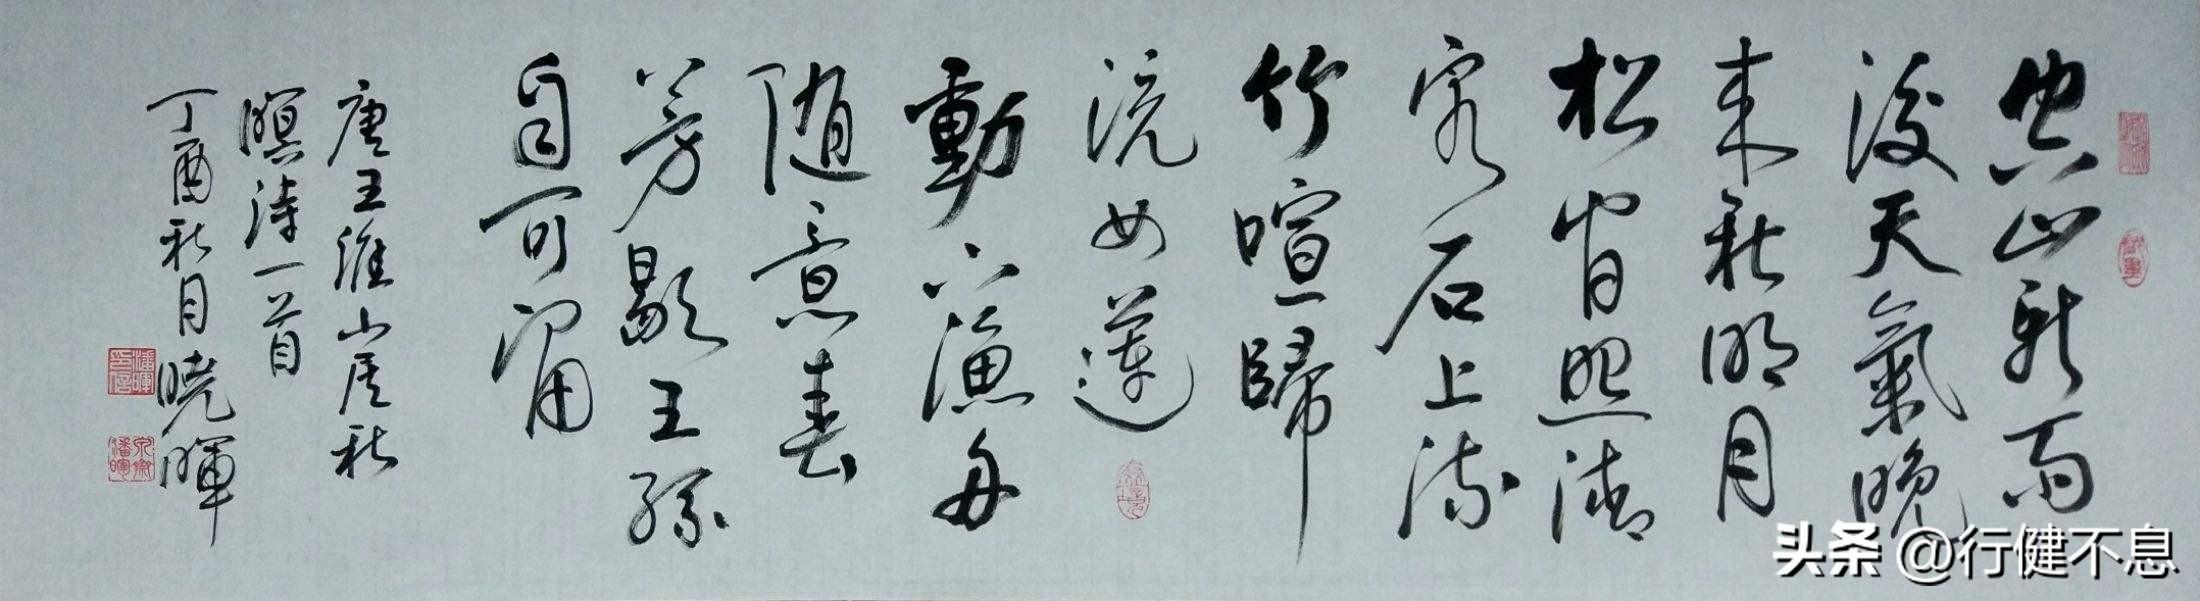 空山新雨
後天氣晚
来秋明月
松间照清
泉石上流
竹喧歸
浣女蓮
動下漁舟
随意春
芳歇王孫
自可留
唐王維山居秋
暝诗一首
丁酉秋月曉暉
潘暉印信
头条 @行健不息